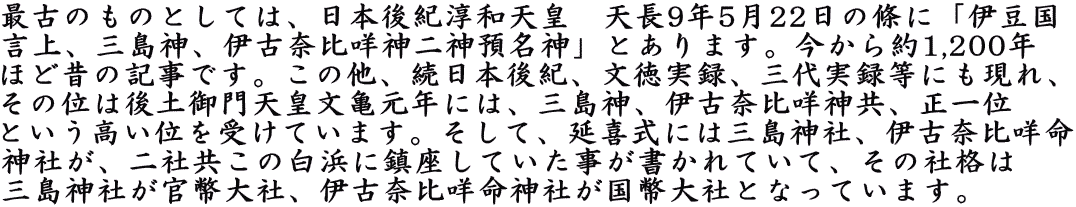 最古のものとしては、日本後紀淳和天皇　天長9年5月22日の條に「伊豆国
言上、三島神、伊古奈比咩神二神預名神」とあります。今から約1,200年
ほど昔の記事です。この他、続日本後紀、文徳実録、三代実録等にも現れ、
その位は後土御門天皇文亀元年には、三島神、伊古奈比咩神共、正一位
という高い位を受けています。そして、延喜式には三島神社、伊古奈比咩命
神社が、二社共この白浜に鎮座していた事が書かれていて、その社格は
三島神社が官幣大社、伊古奈比咩命神社が国幣大社となっています。